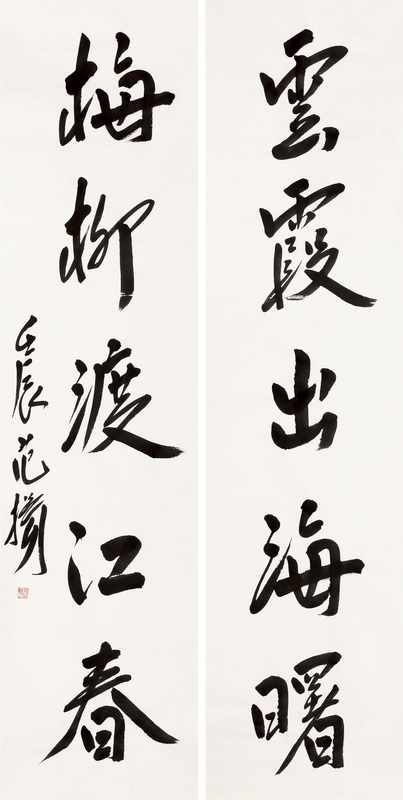 雲霞出海曙
梅柳渡江春
壬辰范揚